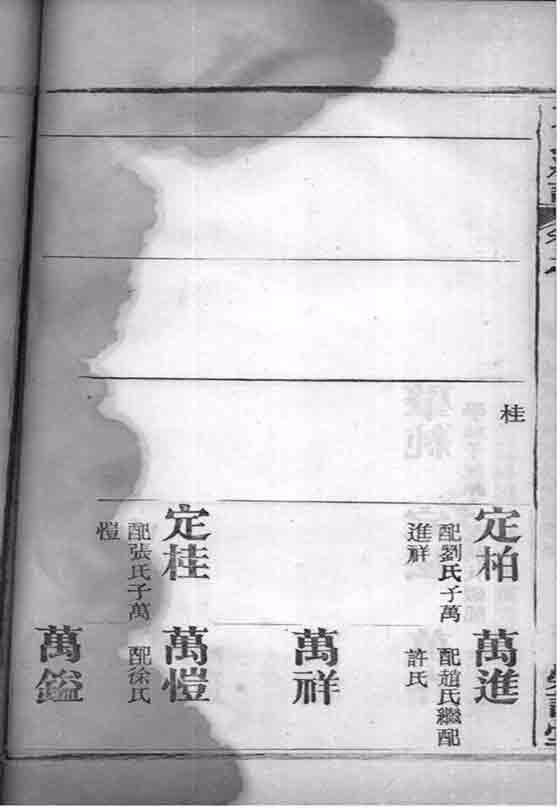 桂
定柏
配劉氏子萬
進祥
定桂
配張氏子萬
愷
萬進
配趙氏繼配
許氏
萬祥
萬愷
配徐氏
萬鎰